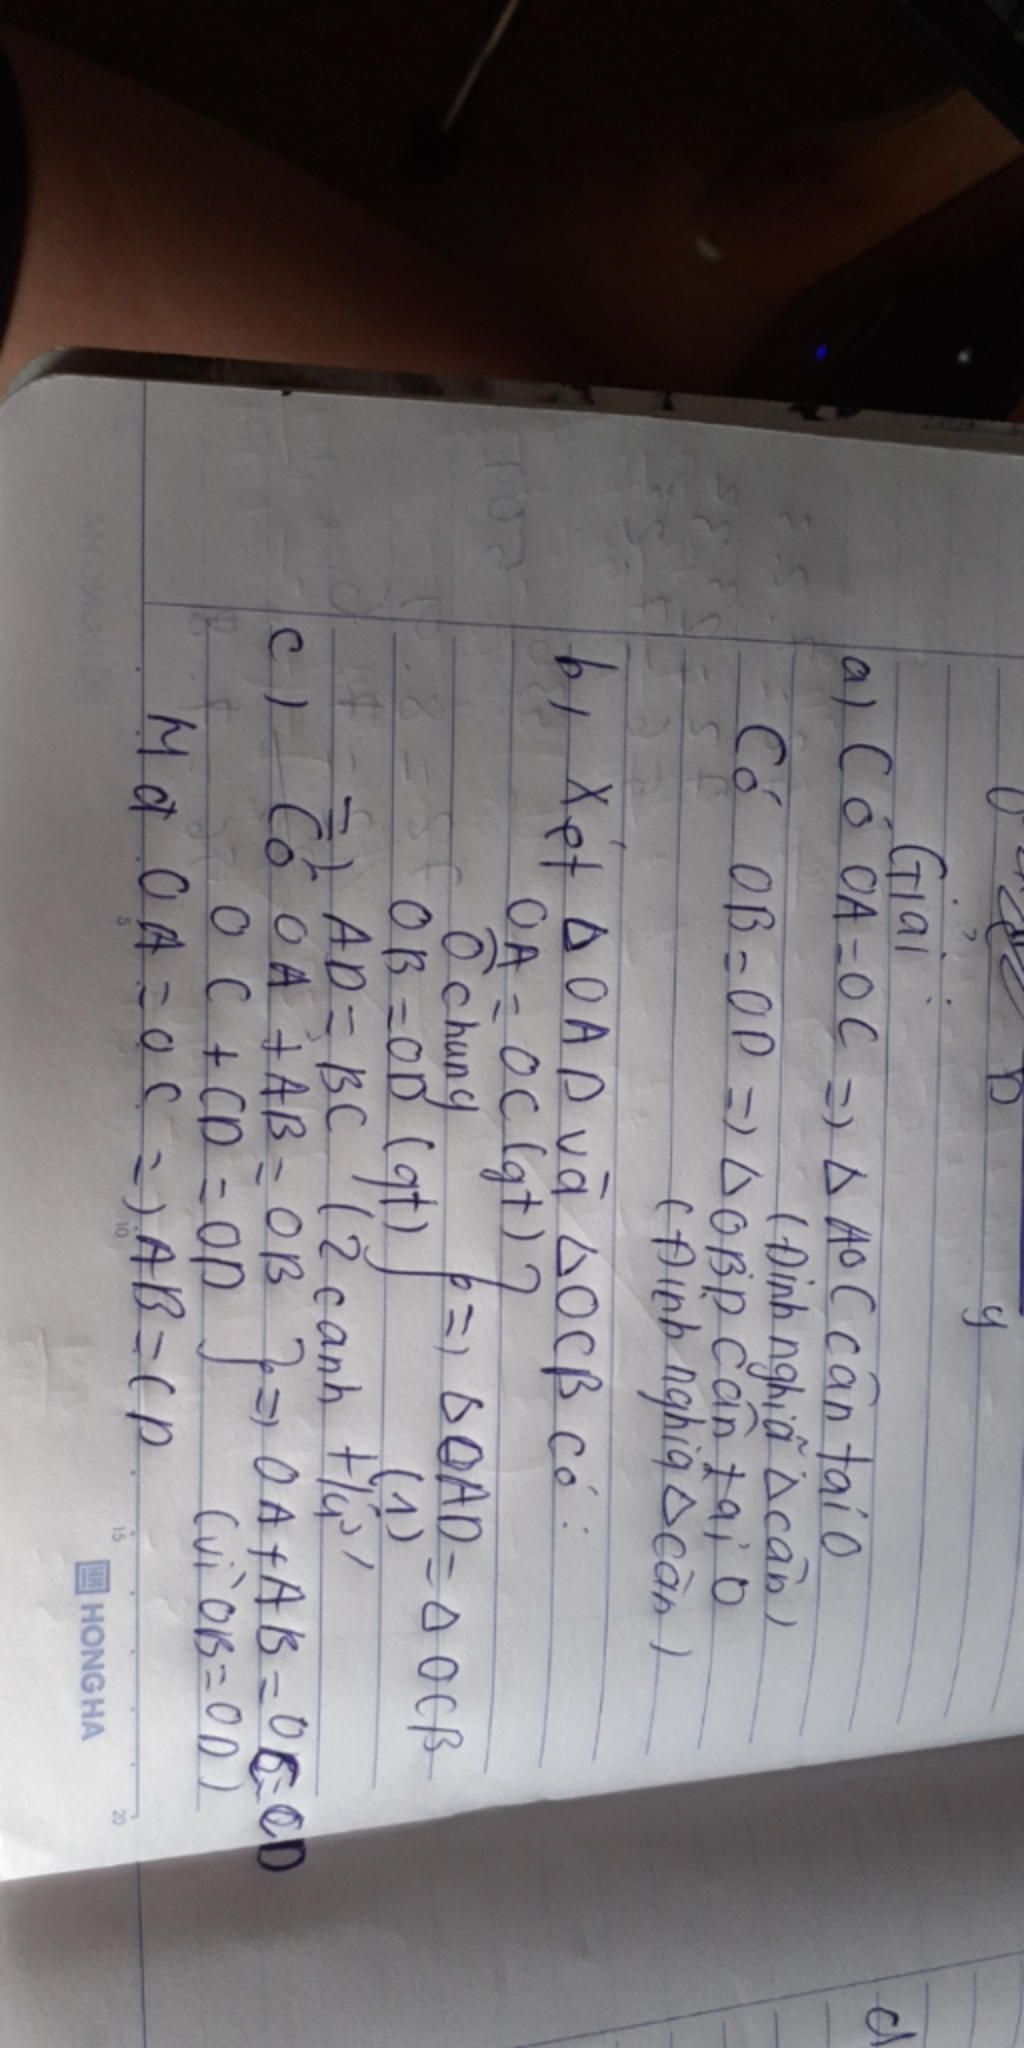 D
y
Giải
a) Có OA=OC => Δ AOC cân tại O
(Định nghĩa Δ cân)
Có OB=OD => Δ OBD cân tại O
(Định nghĩa Δ cân)
b) Xét Δ OAD và Δ OCB có:
OA=OC (gt)
Ô chung
OB=OD (gt)
} => Δ OAD = Δ OCB
(1)
=) AD=BC (2 cạnh t/ứ)
c) Có OA+AB=OB
OC+CD=OD
} => OA+AB=OC+CD
(vì OB=OD)
Mà OA=OC => AB=CD
5 10 15 20
HONG HA
d